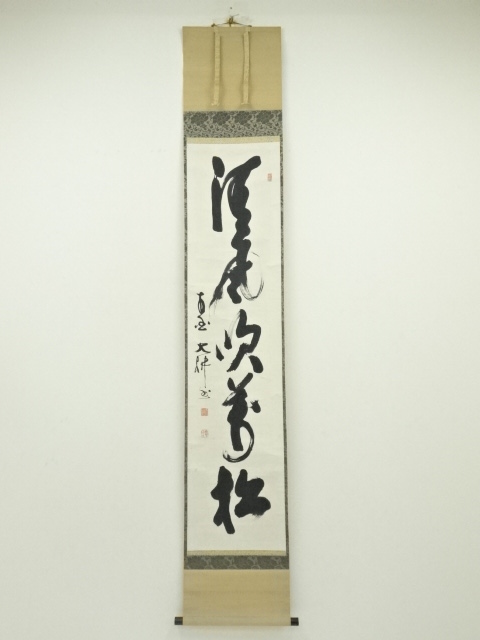 清風吹萬松
大耕